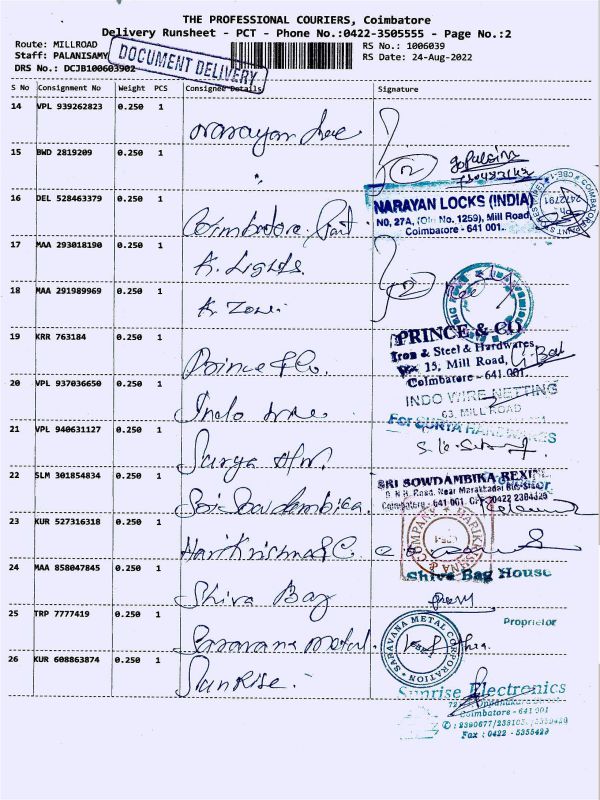 THE PROFESSIONAL COURIERS, Coimbatore
Delivery Runsheet - PCT - Phone No.:0422-3505555 - Page No.:2
Route: MILLROAD
RS No.: 1006039
Staff: PALANISAMY
RS Date: 24-Aug-2022
DRS No.: DCJB100603902
DOCUMENT DELIVERY
S No Consignment No Weight PCS Consignee Details Signature
14 VPL 939262823 0.250 1
15 BWD 2819209 0.250 1 "
2
16 DEL 528463379 0.250 1 Coimbatore
NARAYAN LOCKS (INDIA)
NO, 27A, (Old No. 1259), Mill Road,
Coimbatore - 641 001.
17 MAA 293018190 0.250 1 A. Lights.
2
18 MAA 291989969 0.250 1 A Zone.
19 KRR 763184 0.250 1 Prince & Co.
PRINCE & CO
Iron & Steel & Hardwares,
15, Mill Road,
Coimbatore - 641 001
20 VPL 937036650 0.250 1 Indo wire
INDO WIRE NETTING
63, MILL ROAD
21 VPL 940631127 0.250 1 Surya H/W.
For SURYA HARDWARES
22 SLM 301854834 0.250 1 Sri Sowdambica.
SRI SOWDAMBIKA REXINE
Road, Near Marakkadai Bus Stop,
Coimbatore - 641 001.
23 KUR 527316318 0.250 1 Harikrishna & C.
HARIKRISHNA & COMPANY
24 MAA 858047845 0.250 1 Shiva Bag
Shiva Bag House
Proprietor
25 TRP 7777419 0.250 1 Saravana metal.
SARAVANA METAL CORPORATION
26 KUR 608863874 0.250 1 Sunrise.
Sunrise Electronics
Coimbatore - 641 001
Fax : 0422 - 5355429